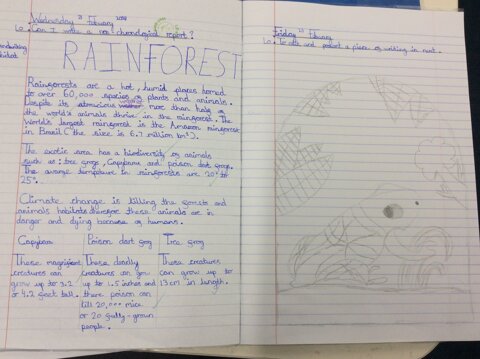 Wednesday February
Lo: Can I write a non-chronological report?
RAINFOREST
Rainforests are a hot, humid places homed
to over 60,000 species of plants and animals.
Despite its atrocious weather more than half of
the world's animals thrive in the rainforest. The
world's largest rainforest is the Amazon rainforest
in Brazil (the size is 6.7 million km²).
The exotic area has a biodiversity of animals
such as: tree frogs, Capybaras and poison dart frogs.
The average temperture in rainforests are 20° to
25°.
Climate change is killing the forests and
animals habitats therefore these animals are in
danger and dying because of humans.
Capybara
These magnificent
creatures can
grow up to 3.2
or 4.2 feet tall.
Poison dart frog
These deadly
creatures can grow
up to 1.5 inches and
there poison can
kill 20,000 mice
or 20 fully-grown
people.
Tree frog
These creatures
can grow up to
13 cm in length.
Friday February
Lo: To edit and perfect a piece of writing in neat.